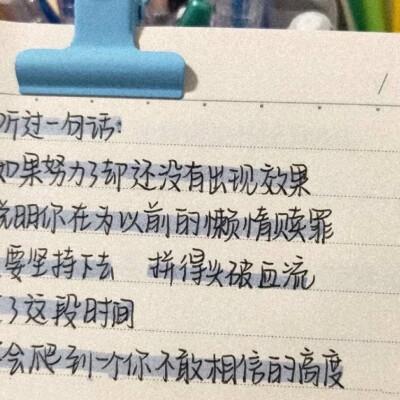 听过一句话:
如果努力了却还没有出现效果
说明你在为以前的懒惰赎罪
要坚持下去 拼得头破血流
了这段时间
会爬到一个你不敢相信的高度